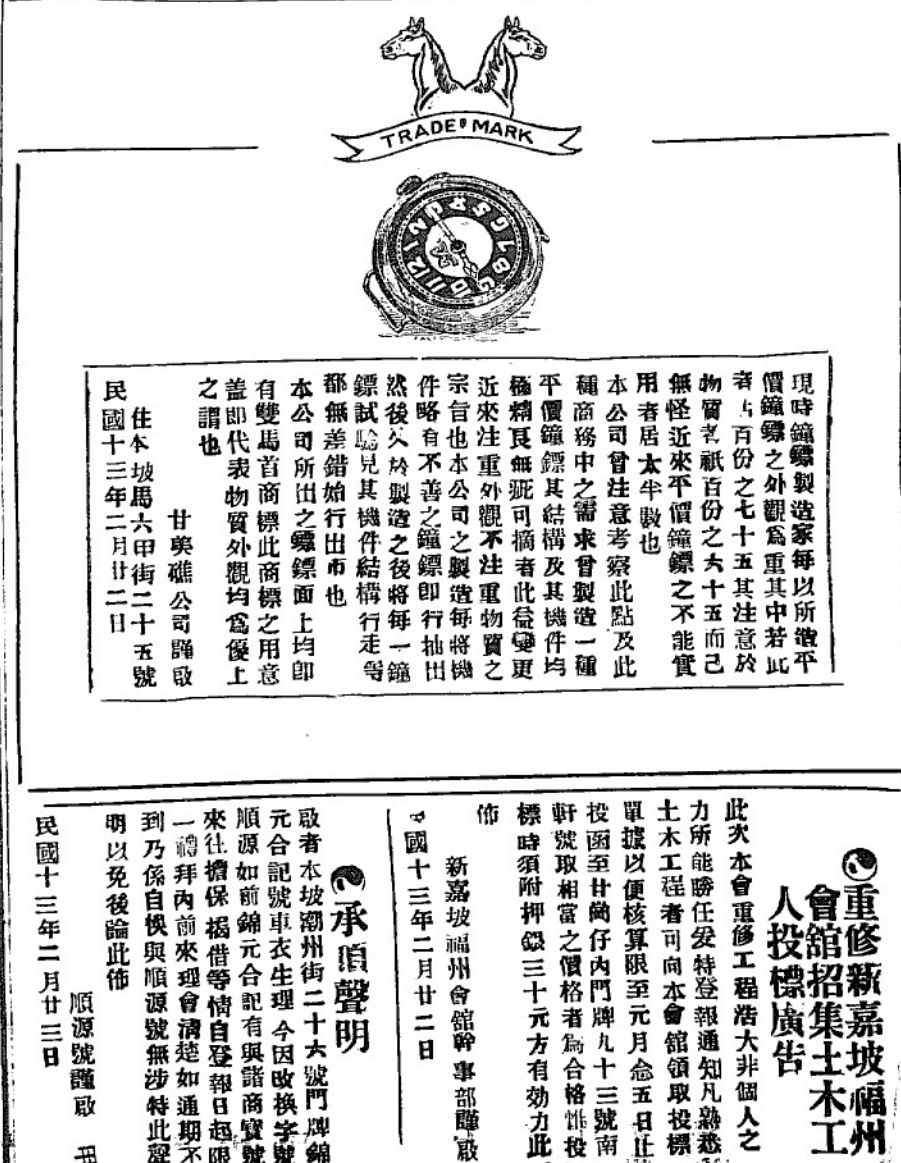 TRADE MARK
現時鐘鏢製造家每以所造平
價鐘鏢之外觀爲重其中若此
者占百份之七十五其注意於
物質者祇百份之六十五而己
無怪近來平價鐘鏢之不能實
用者居太半數也
本公司曾注意考察此點及此
種商務中之需求曾製造一種
平價鐘鏢其結構及其機件均
極精良無疵可摘者此益變更
近來注重外觀不注重物質之
宗旨也本公司之製造每將機
件略有不善之鐘鏢即行抽出
然後久於製造之後將每一鐘
鏢試驗見其機件結構行走等
都無差錯始行出市也
本公司所出之鏢鏢面上均印
有雙馬首商標此商標之用意
盖即代表物質外觀均爲優上
之謂也
甘美礁公司謹啟
住本坡馬六甲街二十五號
民國十三年二月廿二日
重修新嘉坡福州
會舘招集土木工
人投標廣告
此次本會重修工程浩大非個人之
力所能勝任爰特登報通知凡熟悉
土木工程者可向本會舘領取投標
單據以便核算限至元月念五日止
投函至甘崗仔內門牌九十三號南
軒號取相當之價格者爲合格惟投
標時須附押銀三十元方有效力此
佈
新嘉坡福州會舘幹事部謹啟
國十三年二月廿二日
承頂聲明
啟者本坡潮州街二十六號門牌錦
元合記號車衣生理今因改換字號
順源如前錦元合記有與諸商寶號
來往擔保揭借等情自登報日起限
一禮拜內前來理會清楚如通期不
到乃係自悞與順源號無涉特此聲
明以免後論此佈
順源號謹啟
民國十三年二月廿三日